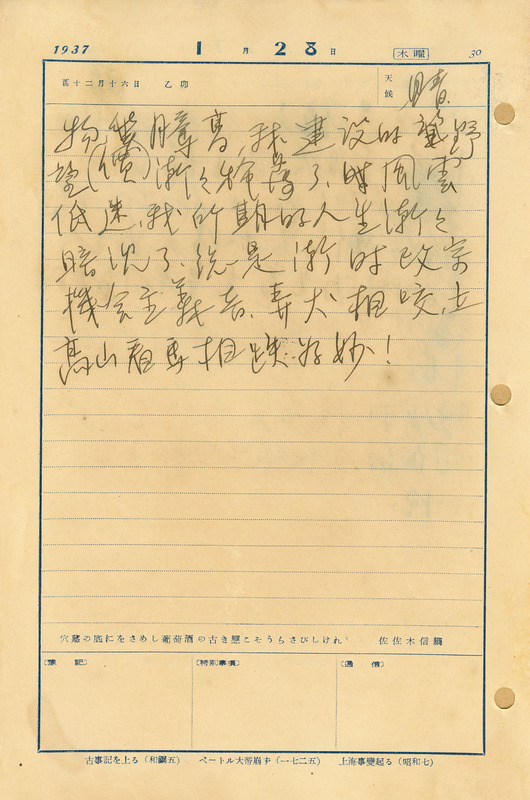 1937 1月28日 木曜 30
舊十二月十六日 乙卯 天候 晴
物價騰高、我建設的 野
望(價)漸々 落了、時風雲
低迷、我的期的人生漸々
暗淡了、 是漸時改宗
機會主義者、弄犬相咬、上
高山看馬相踢好妙!
穴藏の底にをさめし葡萄酒の古き戀こそうらさびしけれ 佐佐木信綱
〔豫記〕 〔特別事項〕 〔通信〕
古事記を上る(和銅五) ペートル大帝崩ず(一七二五) 上海事變起る(昭和七)